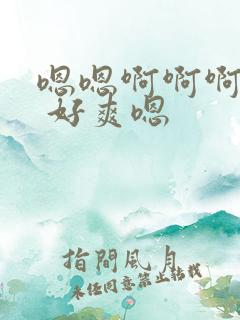 嗯嗯啊啊啊
好爽嗯
指間風月
未经同意禁止转载